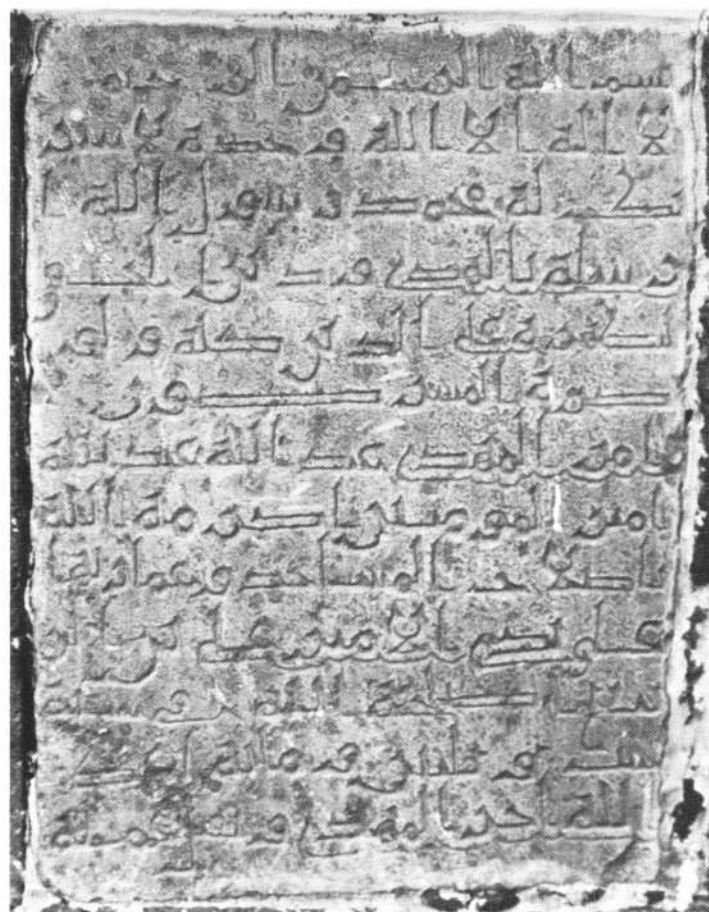 بسم الله الرحمن الرحيم
لا اله الا الله وحده لا شر
يك له محمد رسول الله ا
رسله بالهدى ودين الحق
ليظهره على الدين كله ولو
كره المشركون
امر المهدي عبد الله عبد الله
امير المومنين اكرمه الله
باصلاح المساجد وعمارتها
على الامير علي
اصلحه الله في سنة
وستين ومائة اعظم
الله اجر المهدي عمله